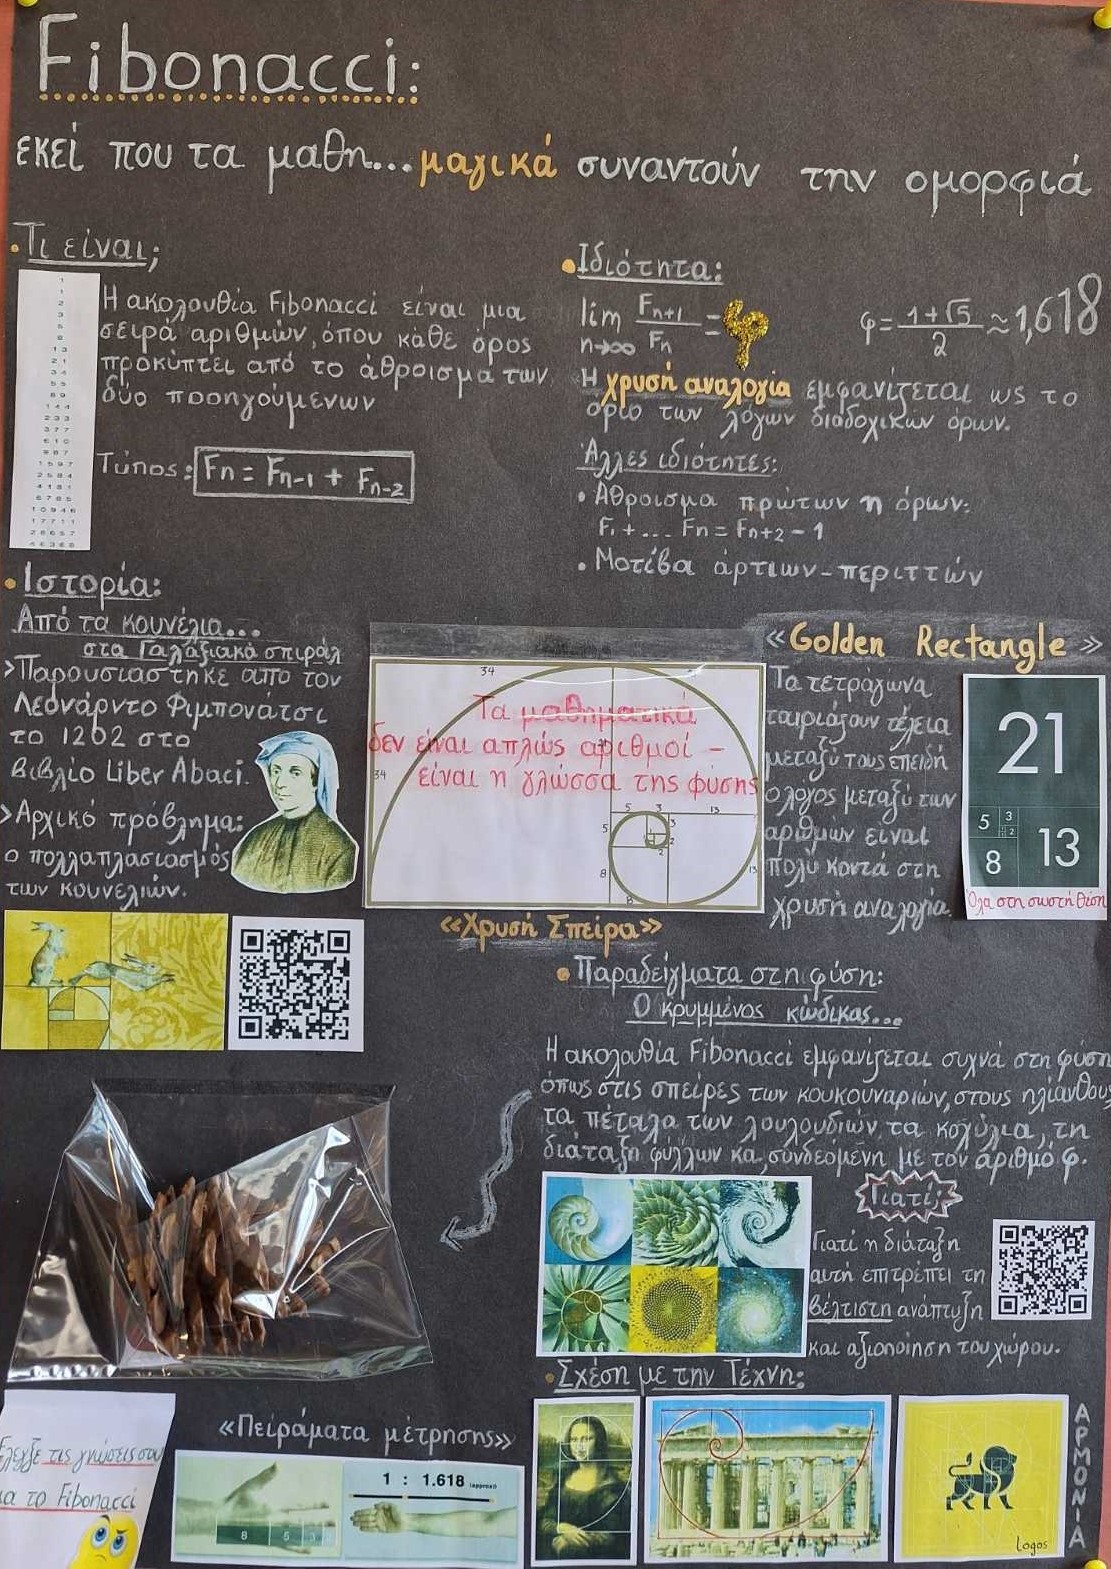 Fibonacci:
εκεί που τα μαθη...μαγικά συναντούν την ομορφιά
• Τι είναι;
1
1
2
3
5
8
13
21
34
55
89
144
233
377
610
987
1597
2584
4181
6765
10946
17711
28657
46368
Η ακολουθία Fibonacci είναι μια
σειρά αριθμών, όπου κάθε όρος
προκύπτει από το άθροισμα των
δύο προηγούμενων
Τύπος: Fn = Fn-1 + Fn-2
• Ιδιότητα:
lim n→∞ Fn+1/Fn = φ
φ = 1+√5/2 ≈ 1,618
Η χρυσή αναλογία εμφανίζεται ως το
όριο των λόγων διαδοχικών όρων.
Άλλες ιδιότητες:
• Άθροισμα πρώτων η όρων:
F1 + ... Fn = Fn+2 - 1
• Μοτίβα άρτιων-περιττών
• Ιστορία:
Από τα κουνέλια...
στα Γαλαξιακά σπιράλ
>Παρουσιάστηκε από τον
Λεονάρντο Φιμπονάτσι
το 1202 στο
βιβλίο Liber Abaci.
>Αρχικό πρόβλημα:
ο πολλαπλασιασμός
των κουνελιών.
34
Τα μαθηματικά
δεν είναι απλώς αριθμοί –
είναι η γλώσσα της φύσης
34
5
3
13
5
3
2
2
8
13
8
«Χρυσή Σπείρα»
«Golden Rectangle»
Τα τετράγωνα
ταιριάζουν τέλεια
μεταξύ τους επειδή
ο λόγος μεταξύ των
αριθμών είναι
πολύ κοντά στη
χρυσή αναλογία.
21
5
3
2
8
13
Όλα στη σωστή θέση
• Παραδείγματα στη φύση:
Ο κρυμμένος κώδικας...
Η ακολουθία Fibonacci εμφανίζεται συχνά στη φύση
όπως στις σπείρες των κουκουναριών, στους ηλίανθους,
τα πέταλα των λουλουδιών, τα κοχύλια, τη
διάταξη φύλλων κα, συνδεόμενη με τον άριθμό φ.
Γιατί;
Γιατί η διάταξη
αυτή επιτρέπει τη
βέλτιστη ανάπτυξη
και αξιοποίηση του χώρου.
• Σχέση με την Τέχνη:
ΑΡΜΟΝΙΑ
Logos
«Πειράματα μέτρησης»
8
5
3
1 : 1.618 (approx)
Έλεγξε τις γνώσεις σου
για το Fibonacci